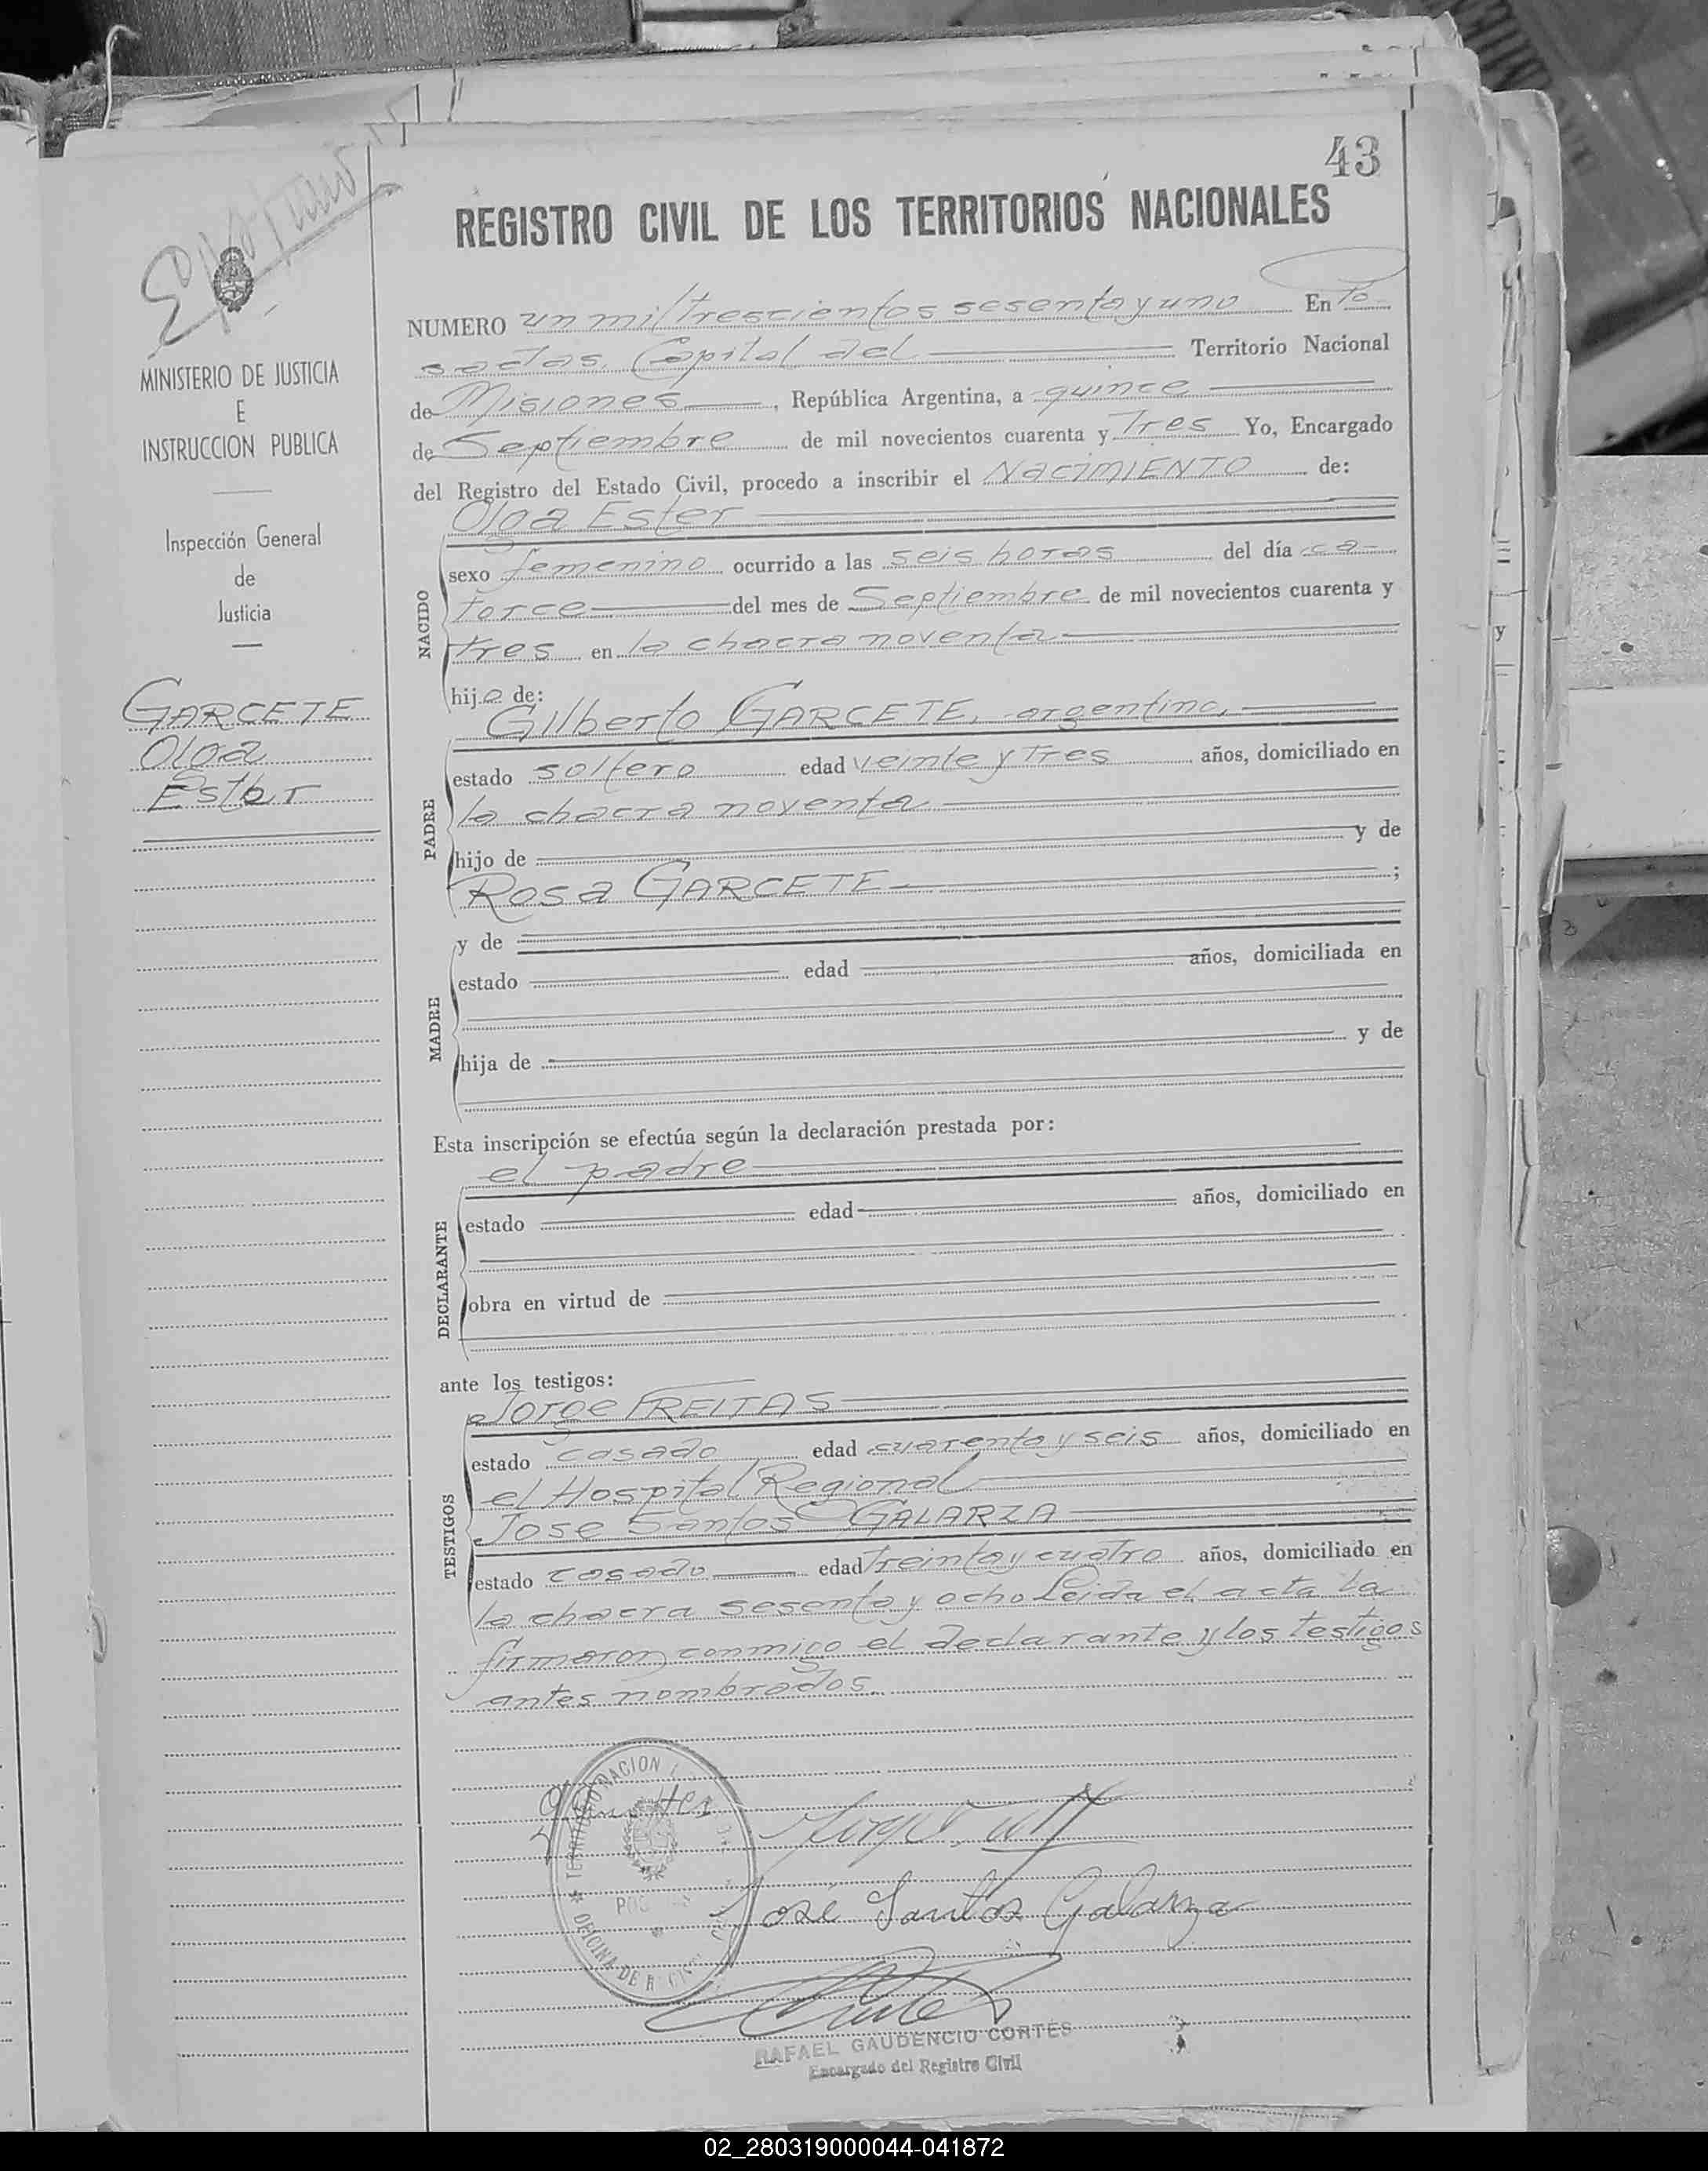 43
REGISTRO CIVIL DE LOS TERRITORIOS NACIONALES
MINISTERIO DE JUSTICIA
E
INSTRUCCION PUBLICA
Inspección General
de
Justicia
GARCETE
Olga
Ester
NUMERO un mil trescientos sesenta y uno En Po-
sadas, Capital del Territorio Nacional
de Misiones, República Argentina, a quince
de Septiembre de mil novecientos cuarenta y Tres Yo, Encargado
del Registro del Estado Civil, procedo a inscribir el NACIMIENTO de:
Olga Ester
NACIDO
sexo femenino ocurrido a las seis horas del día ca-
torce del mes de Septiembre de mil novecientos cuarenta y
tres en la chacra noventa
hija de:
Gilberto GARCETE, argentino,
PADRE
estado soltero edad veinte y Tres años, domiciliado en
la chacra noventa
hijo de y de
Rosa GARCETE ;
y de
MADRE
estado edad años, domiciliada en
hija de y de
Esta inscripción se efectúa según la declaración prestada por:
el padre
DECLARANTE
estado edad años, domiciliado en
obra en virtud de
ante los testigos:
Jorge FREITAS
TESTIGOS
estado casado edad cuarenta y seis años, domiciliado en
el Hospital Regional
Jose Santos GALARZA
estado casado edad treinta y cuatro años, domiciliado en
la chacra sesenta y ocho Leida el acta la
firmaron conmigo el declarante y los testigos
antes nombrados.
José Santos Galarza
RAFAEL GAUDENCIO CORTÉS
Encargado del Registro Civil
02_280319000044-041872